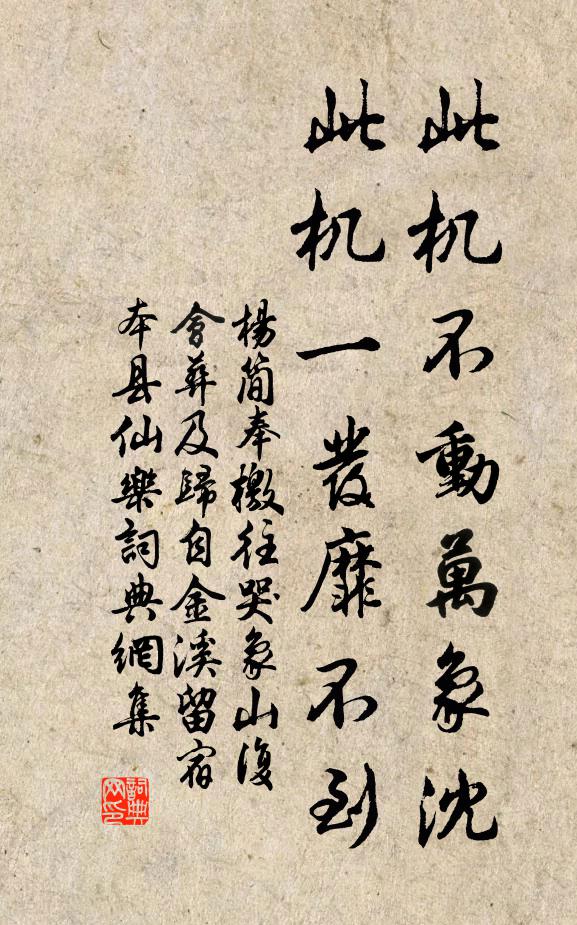 此机不動萬象沈
此机一發靡不到
楊簡奉檄往哭象山復
會葬及歸自金溪留宿
本县仙樂詞典網集
詞典
网印